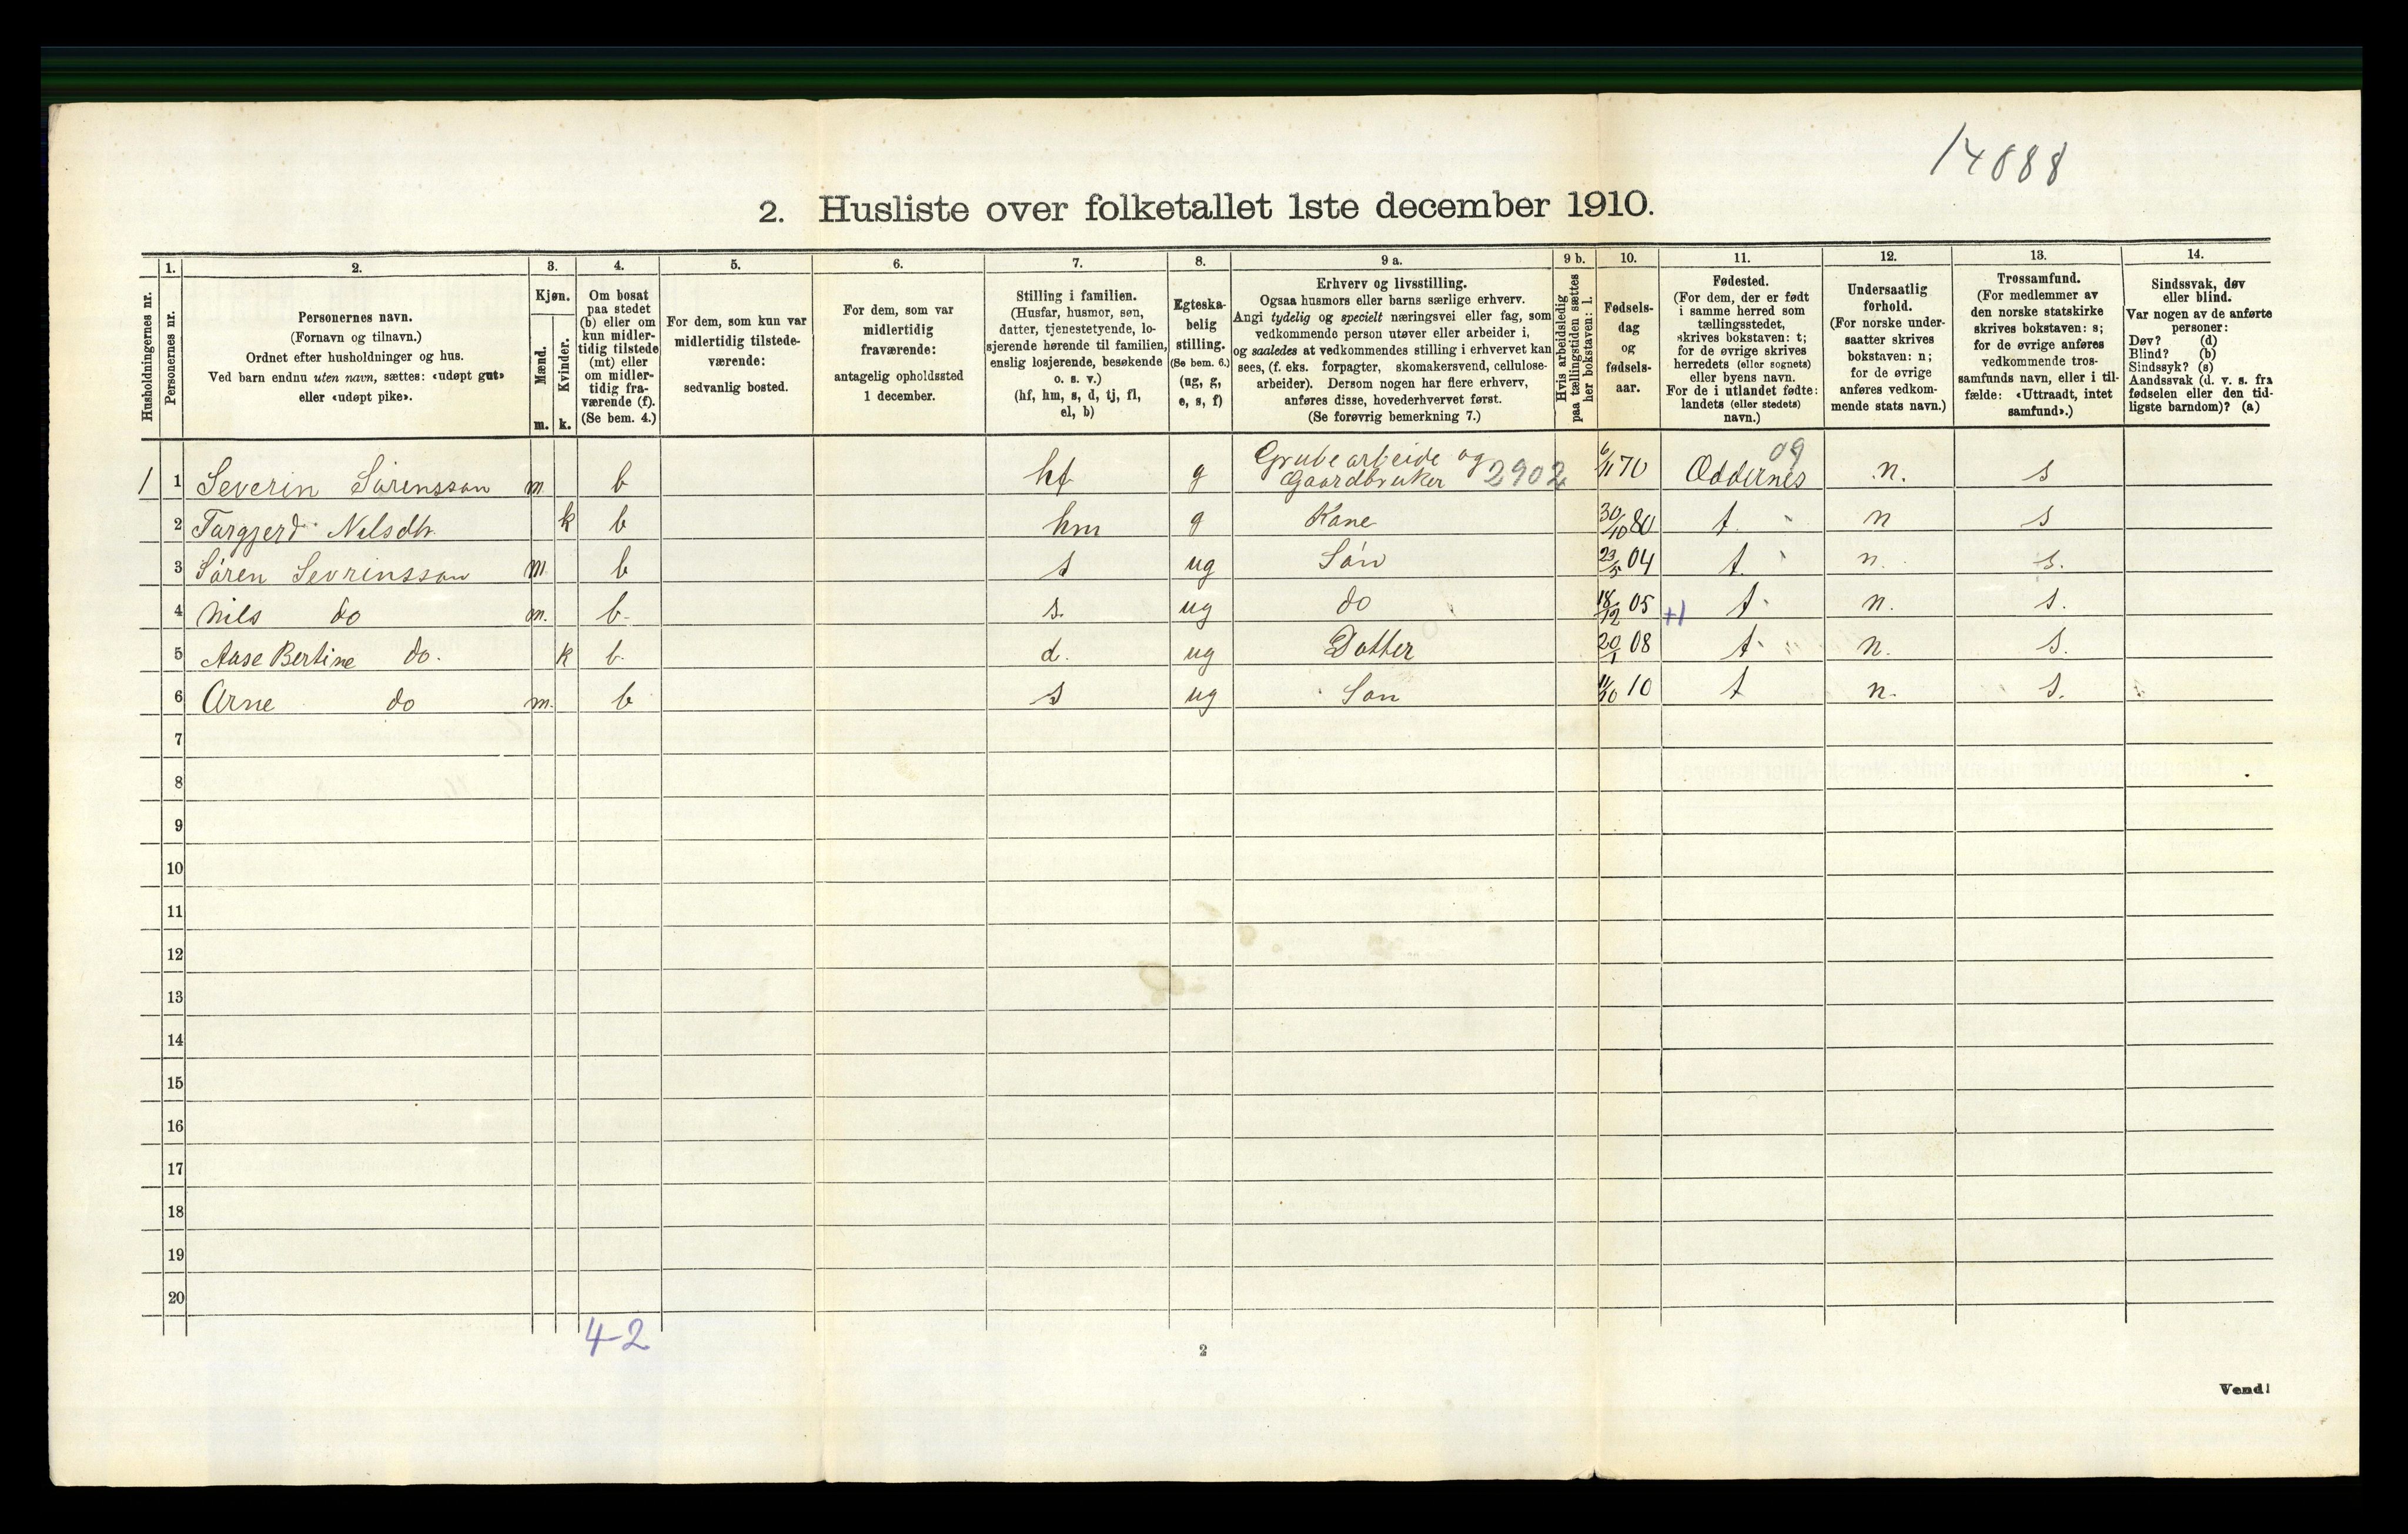 14088
2. Husliste over folketallet 1ste december 1910.
Husholdningernes nr.
1.
Personernes nr.
2.
Personernes navn.
(Fornavn og tilnavn.)
Ordnet efter husholdninger og hus.
Ved barn endnu uten navn, sættes: «udøpt gut»
eller «udøpt pike».
3.
Kjøn.
Mænd.
Kvinder.
m. k.
4.
Om bosat
paa stedet
(b) eller om
kun midler-
tidig tilstede
(mt) eller
om midler-
tidig fra-
værende (f).
(Se bem. 4.)
5.
For dem, som kun var
midlertidig tilstede-
værende:
sedvanlig bosted.
6.
For dem, som var
midlertidig
fraværende:
antagelig opholdssted
1 december.
7.
Stilling i familien.
(Husfar, husmor, søn,
datter, tjenestetyende, lo-
sjerende hørende til familien,
enslig losjerende, besøkende
o. s. v.)
(hf, hm, s, d, tj, fl,
el, b)
8.
Egteska-
belig
stilling.
(Se bem. 6.)
(ug, g,
e, s, f)
9 a.
Erhverv og livsstilling.
Ogsaa husmors eller barns særlige erhverv.
Angi tydelig og specielt næringsvei eller fag, som
vedkommende person utøver eller arbeider i,
og saaledes at vedkommendes stilling i erhvervet kan
sees, (f. eks. forpagter, skomakersvend, cellulose-
arbeider). Dersom nogen har flere erhverv,
anføres disse, hovederhvervet først.
(Se forøvrig bemerkning 7.)
9 b.
Hvis arbeidsledig
paa tællingstiden sættes
her bokstaven: l.
10.
Fødsels-
dag
og
fødsels-
aar.
11.
Fødested.
(For dem, der er født
i samme herred som
tællingsstedet,
skrives bokstaven: t;
for de øvrige skrives
herredets (eller sognets)
eller byens navn.
For de i utlandet fødte:
landets (eller stedets)
navn.)
12.
Undersaatlig
forhold.
(For norske under-
saatter skrives
bokstaven: n;
for de øvrige
anføres vedkom-
mende stats navn.)
13.
Trossamfund.
(For medlemmer av
den norske statskirke
skrives bokstaven: s;
for de øvrige anføres
vedkommende tros-
samfunds navn, eller i til-
fælde: «Uttraadt, intet
samfund».)
14.
Sindssvak, døv
eller blind.
Var nogen av de anførte
personer:
Døv? (d)
Blind? (b)
Sindssyk? (s)
Aandssvak (d. v. s. fra
fødselen eller den tid-
ligste barndom)? (a)
1 1 Severin Sørensson m b hf g Grubearbeide og Gaardbruker 2902 6/11 70 Oddernes 09 n. s
2 Targjerd Nilsdtr. k b hm g Kone 30/10 80 t n s
3 Søren Sevrinsson m b s ug Søn 23/5 04 t. n. s.
4 Nils do m. b. s. ug do 18/12 05 +1 t n. s.
5 Aase Bertine do. k b. d. ug Datter 20/1 08 t n. s.
6 Arne do m. b s ug Søn 11/10 10 t n. s.
7
8
9
10
11
12
13
14
15
16
17
18
19
20
4-2
2
Vend!